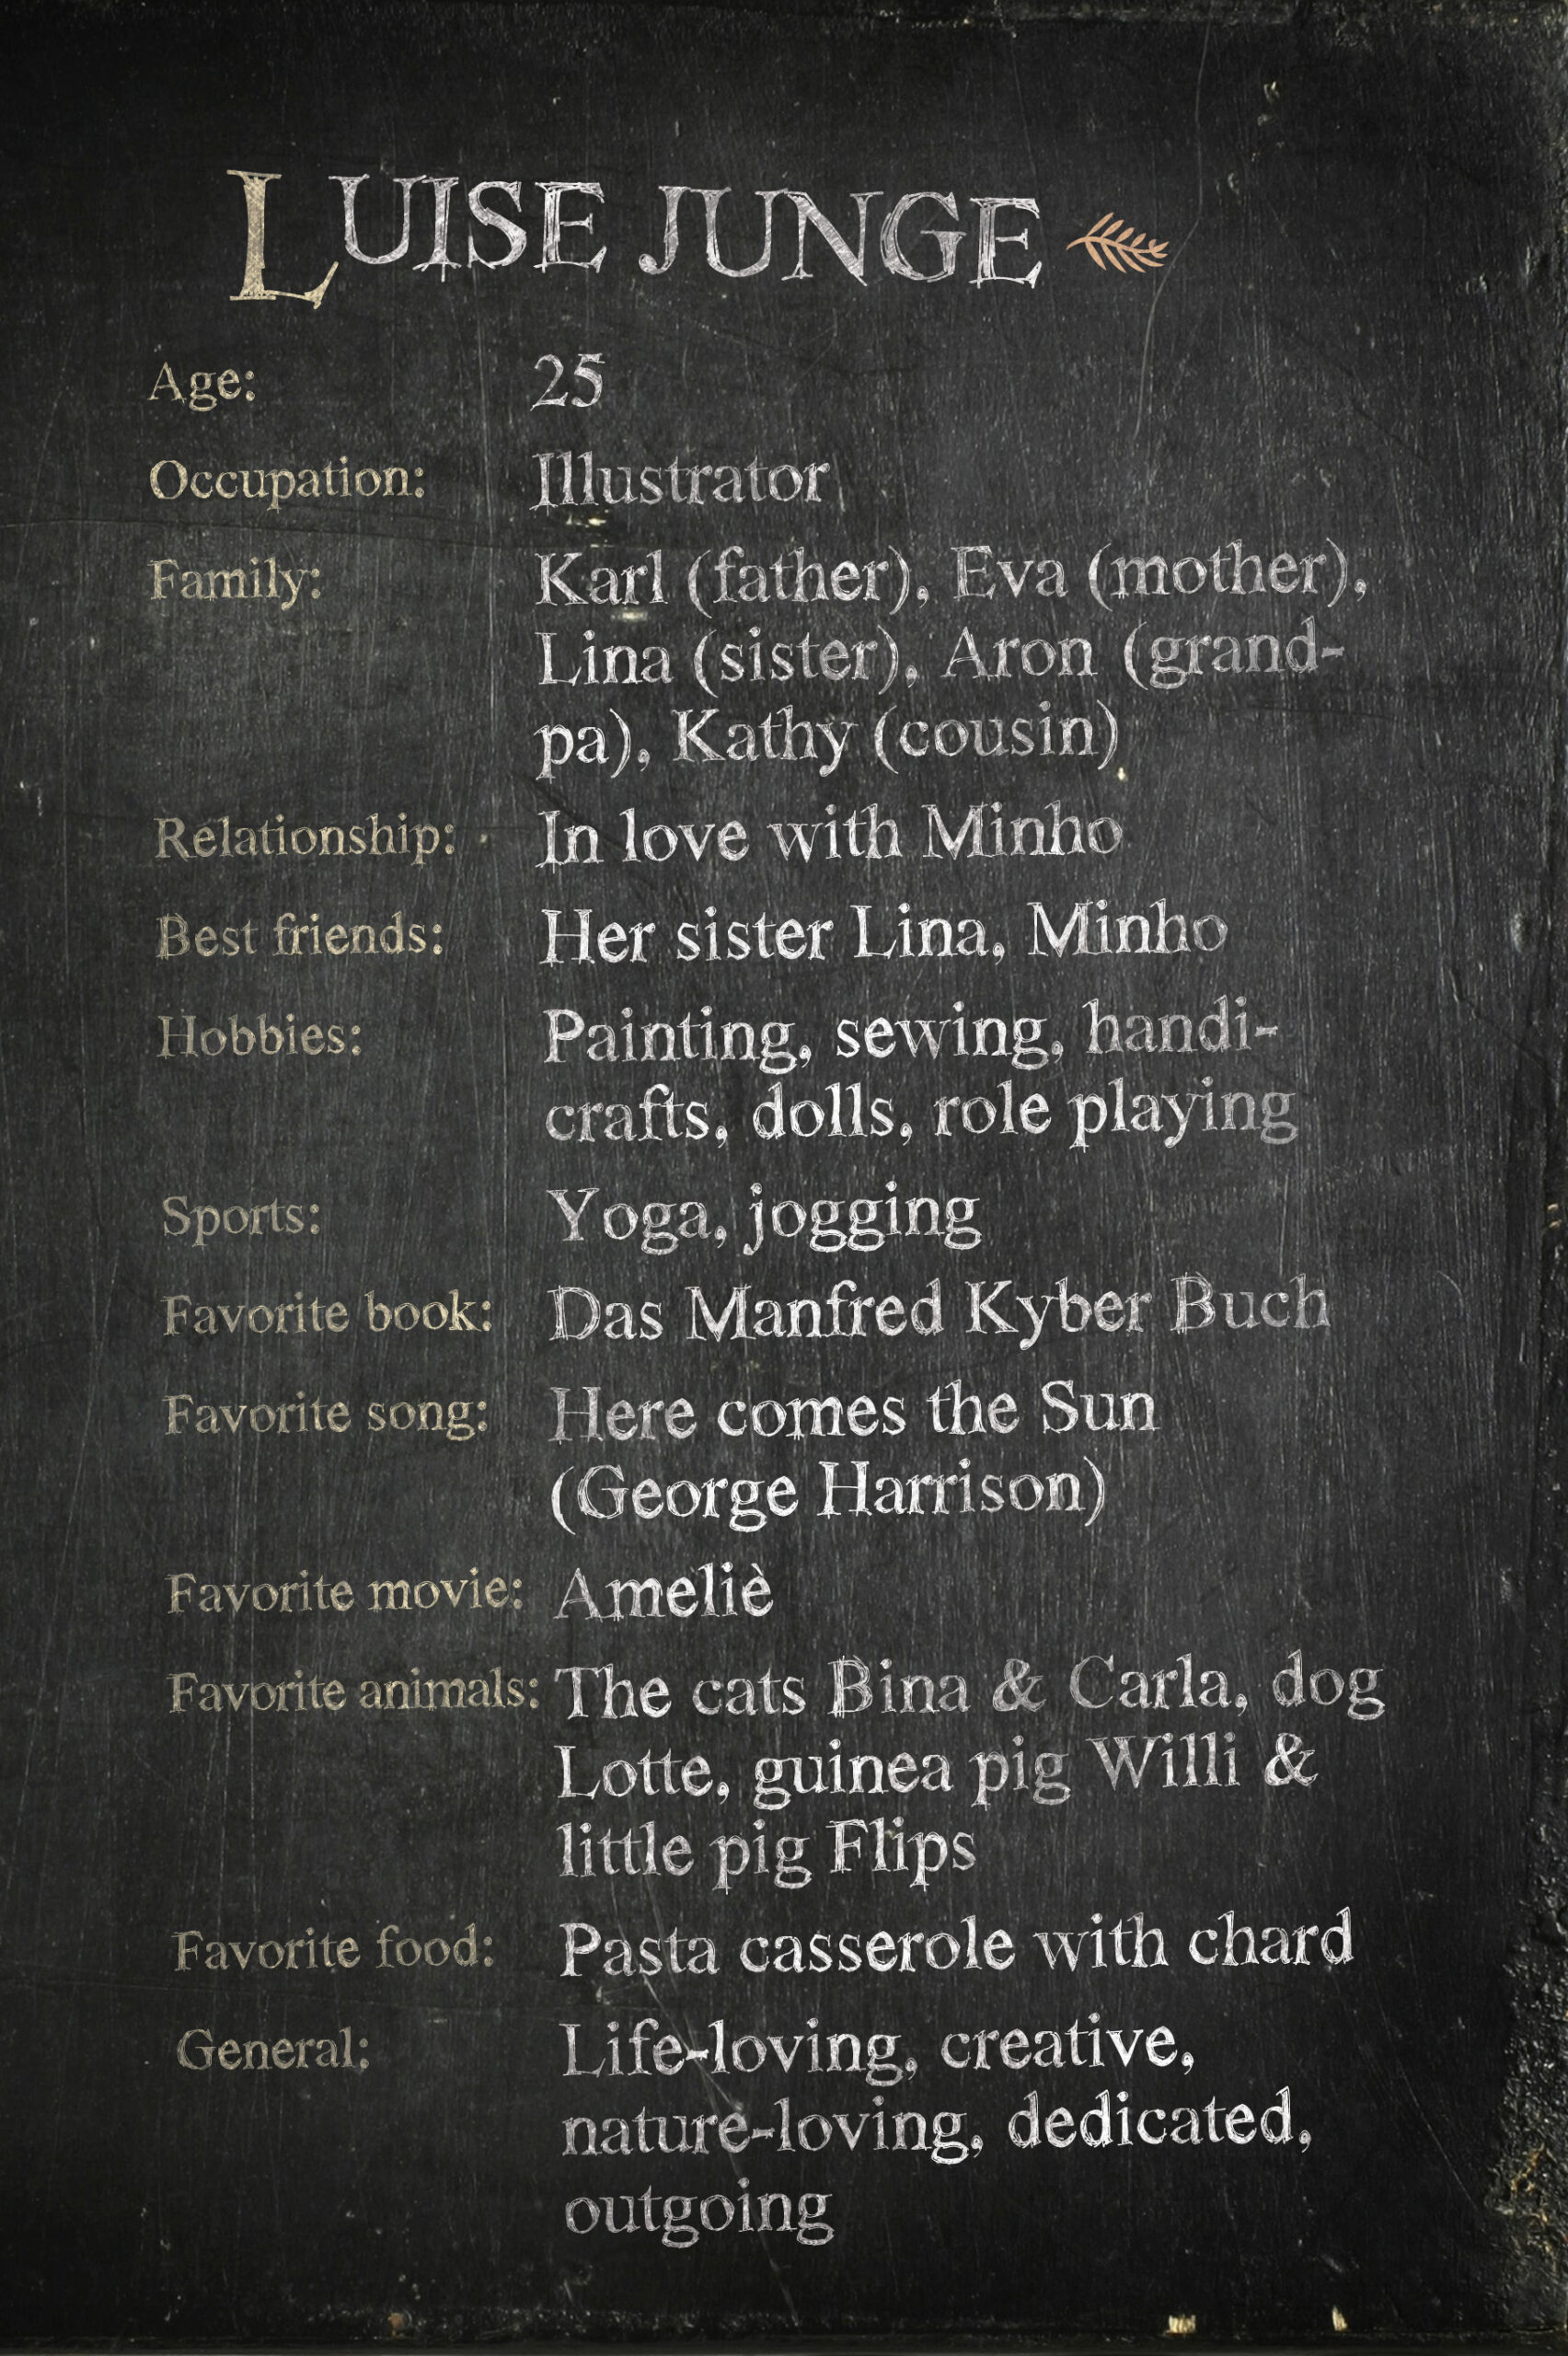 LUISE JUNGE
Age: 25
Occupation: Illustrator
Family: Karl (father), Eva (mother),
Lina (sister), Aron (grand-
pa), Kathy (cousin)
Relationship: In love with Minho
Best friends: Her sister Lina, Minho
Hobbies: Painting, sewing, handi-
crafts, dolls, role playing
Sports: Yoga, jogging
Favorite book: Das Manfred Kyber Buch
Favorite song: Here comes the Sun
(George Harrison)
Favorite movie: Ameliè
Favorite animals: The cats Bina & Carla, dog
Lotte, guinea pig Willi &
little pig Flips
Favorite food: Pasta casserole with chard
General: Life-loving, creative,
nature-loving, dedicated,
outgoing